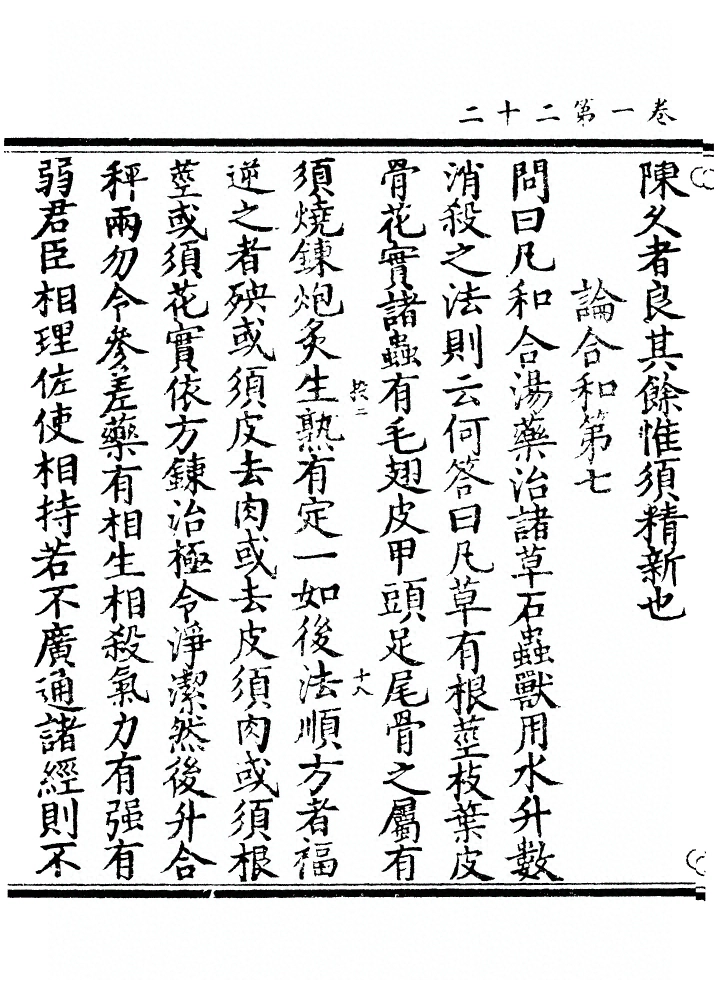 卷一第二十二
陳久者良其餘惟須精新也
論合和第七
問曰凡和合湯藥治諸草石蟲獸用水升數
消殺之法則云何答曰凡草有根莖枝葉皮
骨花實諸蟲有毛翅皮甲頭足尾骨之屬有
須燒鍊炮炙生熟有定一如後法順方者福
逆之者殃或須皮去肉或去皮須肉或須根
莖或須花實依方鍊治極令淨潔然後升合
秤兩勿令參差藥有相生相殺氣力有强有
弱君臣相理佐使相持若不廣通諸經則不
十八